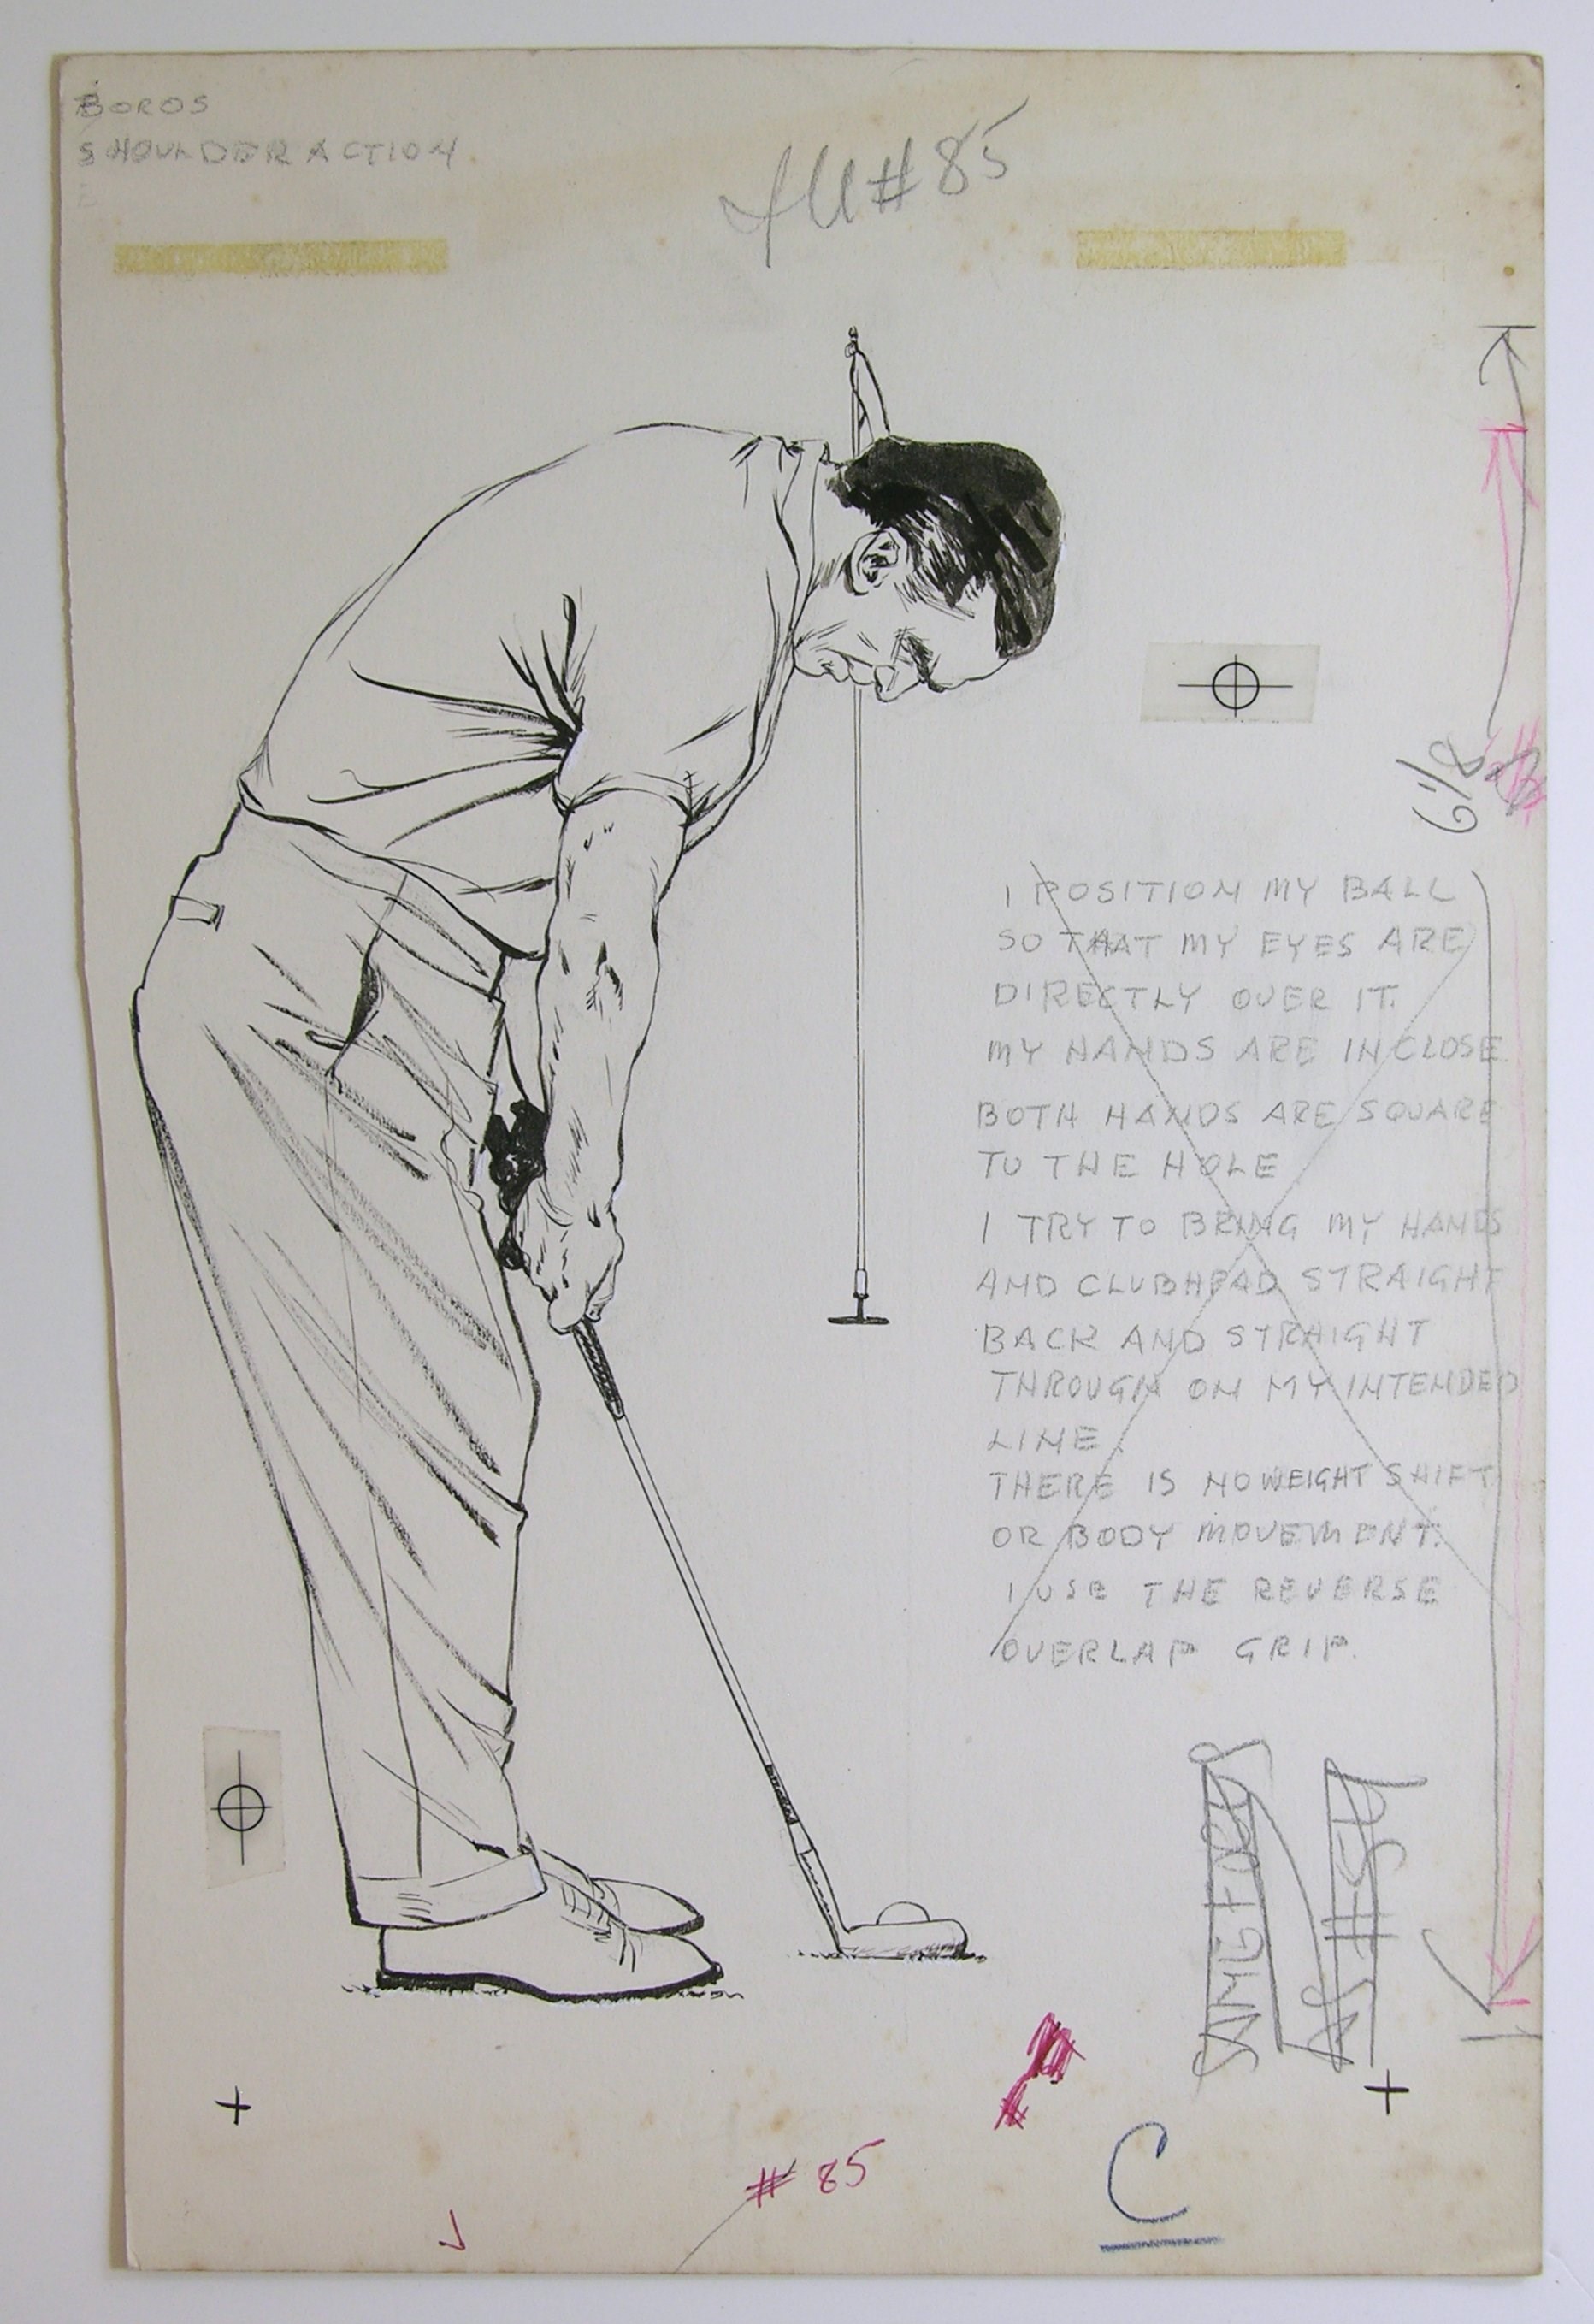 BOROS
SHOULDER ACTION
#85
6 1/8
I POSITION MY BALL
SO THAT MY EYES ARE
DIRECTLY OVER IT.
MY HANDS ARE IN CLOSE
BOTH HANDS ARE SQUARE
TO THE HOLE
I TRY TO BRING MY HANDS
AND CLUBHEAD STRAIGHT
BACK AND STRAIGHT
THROUGH ON MY INTENDED
LINE.
THERE IS NO WEIGHT SHIFT
OR BODY MOVEMENT.
I USE THE REVERSE
OVERLAP GRIP.
SAME FOCUS
AS #84
#85
C